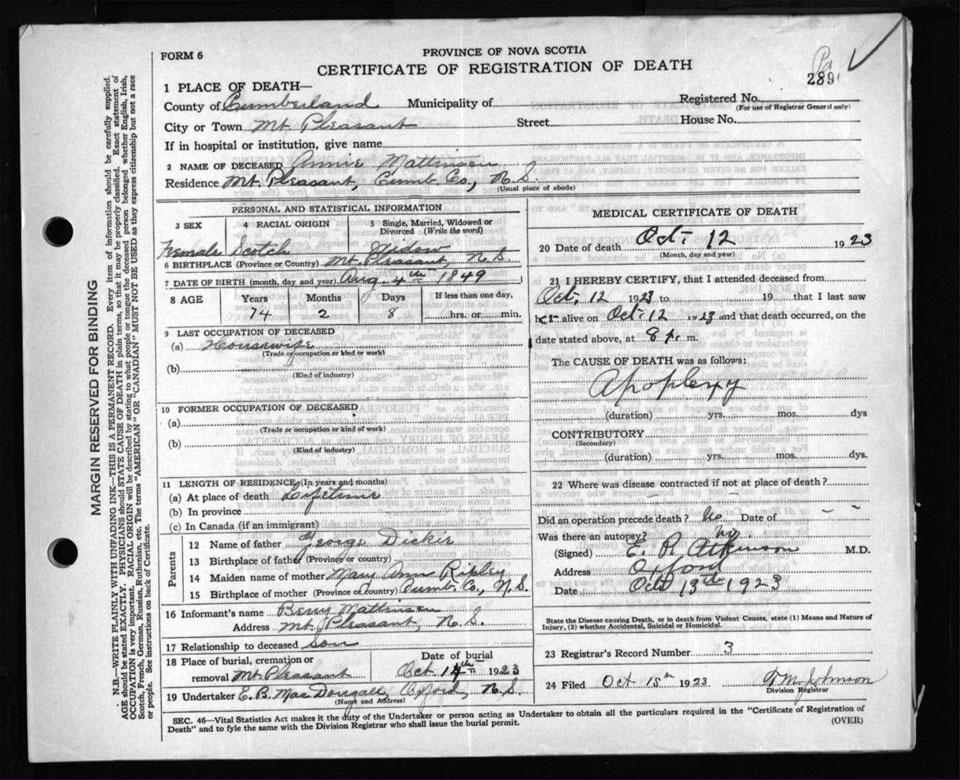 FORM 6
PROVINCE OF NOVA SCOTIA
CERTIFICATE OF REGISTRATION OF DEATH
289
1 PLACE OF DEATH—
County of Cumberland Municipality of Registered No.
(For use of Registrar General only)
City or Town Mt Pleasant Street House No.
If in hospital or institution, give name
2 NAME OF DECEASED Annie Mattinson
Residence Mt Pleasant, Cumb. Co., N.S.
(Usual place of abode)
PERSONAL AND STATISTICAL INFORMATION
3 SEX 4 RACIAL ORIGIN 5 Single, Married, Widowed or Divorced (Write the word)
Female Scotch Widow
6 BIRTHPLACE (Province or Country) Mt. Pleasant, N.S.
7 DATE OF BIRTH (month, day and year) Aug. 4th 1849
8 AGE Years Months Days If less than one day,
74 2 8 hrs. or min.
9 LAST OCCUPATION OF DECEASED
(a) Housewife
(Trade or occupation or kind or work)
(b)
(Kind of industry)
10 FORMER OCCUPATION OF DECEASED
(a)
(Trade or occupation or kind or work)
(b)
(Kind of industry)
11 LENGTH OF RESIDENCE (In years and months)
(a) At place of death Lifetime
(b) In province
(c) In Canada (if an immigrant)
Parents
12 Name of father George Dickie
13 Birthplace of father (Province or country)
14 Maiden name of mother Mary Ann Ripley
15 Birthplace of mother (Province or country) Cumb. Co., N.S.
16 Informant's name Berry Mattinson
Address Mt. Pleasant, N.S.
17 Relationship to deceased son
18 Place of burial, cremation or Date of burial
removal Mt Pleasant Oct 14th 1923
19 Undertaker E. B. MacDougall, Oxford, N.S.
(Name and Address)
MEDICAL CERTIFICATE OF DEATH
20 Date of death Oct. 12 1923
(Month, day and year)
21 I HEREBY CERTIFY, that I attended deceased from
Oct. 12 1923 to 19 that I last saw
her alive on Oct. 12 1923 and that death occurred, on
date stated above, at 8 p. m.
The CAUSE OF DEATH was as follows:
Apoplexy
(duration) yrs. mos. dys
CONTRIBUTORY
(Secondary)
(duration) yrs. mos. dys.
22 Where was disease contracted if not at place of death?
Did an operation precede death? No Date of – –
Was there an autopsy? No
(Signed) E. R. Atkinson M.D.
Address Oxford
Date Oct 13th 1923
State the Disease causing Death, or in death from Violent Causes, state (1) Means and Nature of Injury, (2) whether Accidental, Suicidal or Homicidal.
23 Registrar's Record Number 3
24 Filed Oct 15th 1923 Johnson
Division Registrar
SEC. 46—Vital Statistics Act makes it the duty of the Undertaker or person acting as Undertaker to obtain all the particulars required in the "Certificate of Registration of
Death" and to fyle the same with the Division Registrar who shall issue the burial permit.
(OVER)
MARGIN RESERVED FOR BINDING
N.B.—WRITE PLAINLY WITH UNFADING INK—THIS IS A PERMANENT RECORD. Every item of information should be carefully supplied.
AGE should be stated EXACTLY. PHYSICIANS should STATE CAUSE OF DEATH in plain terms, so that it may be properly classified. Exact statement of
OCCUPATION is very important. RACIAL ORIGIN will be described by stating to what people or tongue the deceased person belonged whether English, Irish,
Scotch, French, German, Russian, Ruthenian, etc. The terms "AMERICAN" OR "CANADIAN" MUST NOT BE USED as they express citizenship but not a race
or people. See instructions on back of Certificate.